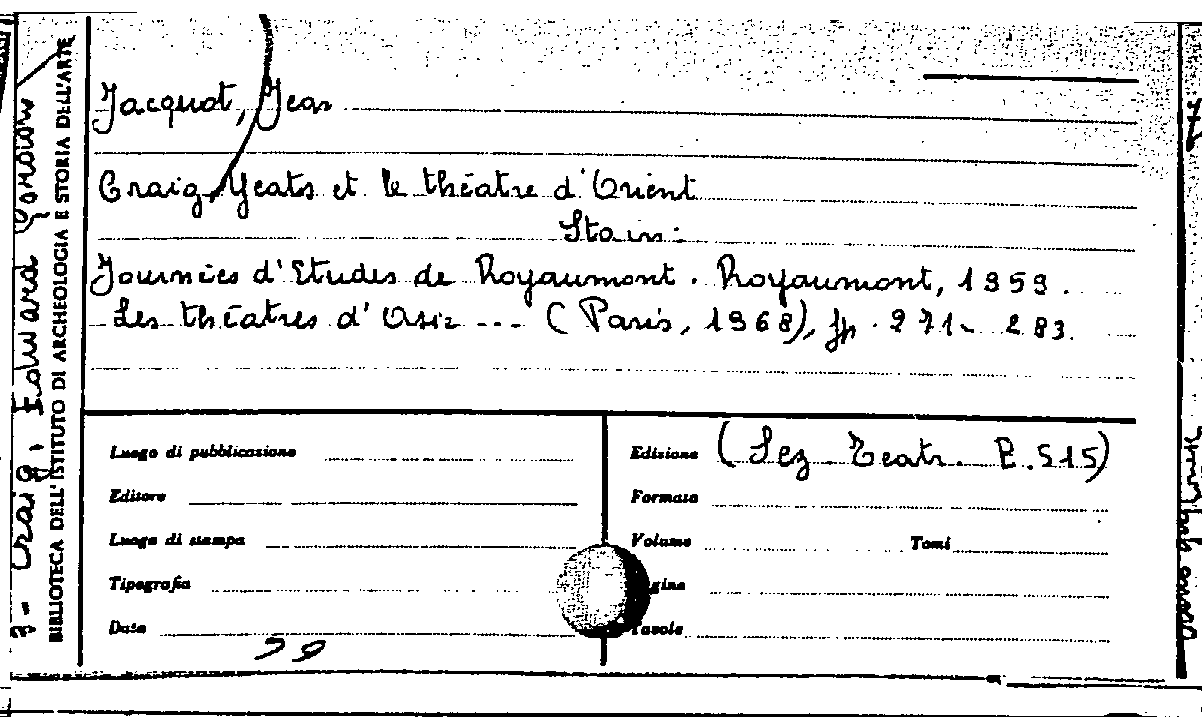 Jacquot, Jean
Craig, Yeats et le théatre d'Orient
Sta in:
Journées d'Etudes de Royaumont. Royaumont, 1959.
Les théatres d'Asie ... (Paris, 1968), pp. 271-283.
Luogo di pubblicazione
Editore
Luogo di stampa
Tipografia
Data
Edizione (Sez. Teatr. P.515)
Formato
Volume Tomi
gine
Tavole
3 - Craig, Edward Gordon
BIBLIOTECA DELL'ISTITUTO DI ARCHEOLOGIA E STORIA DELL'ARTE